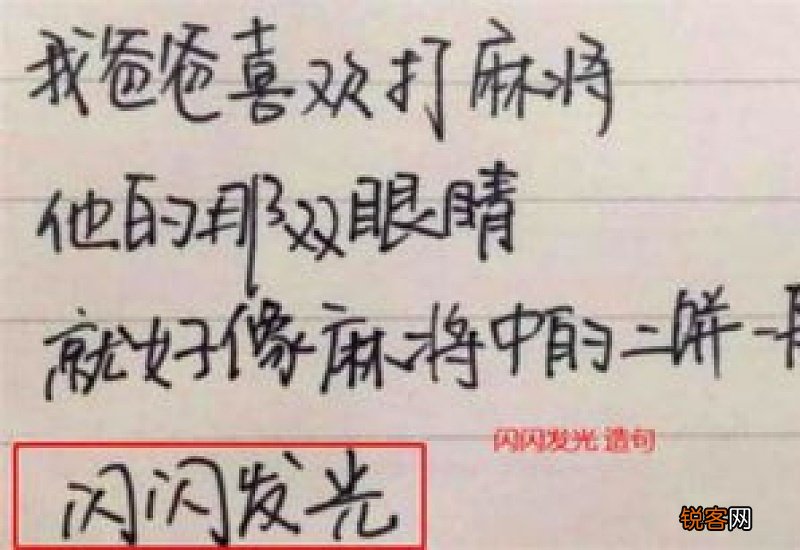 我爸爸喜欢打麻将
他的那双眼睛
就好像麻将中的二饼一
闪闪发光 造句
闪闪发光
锐客网